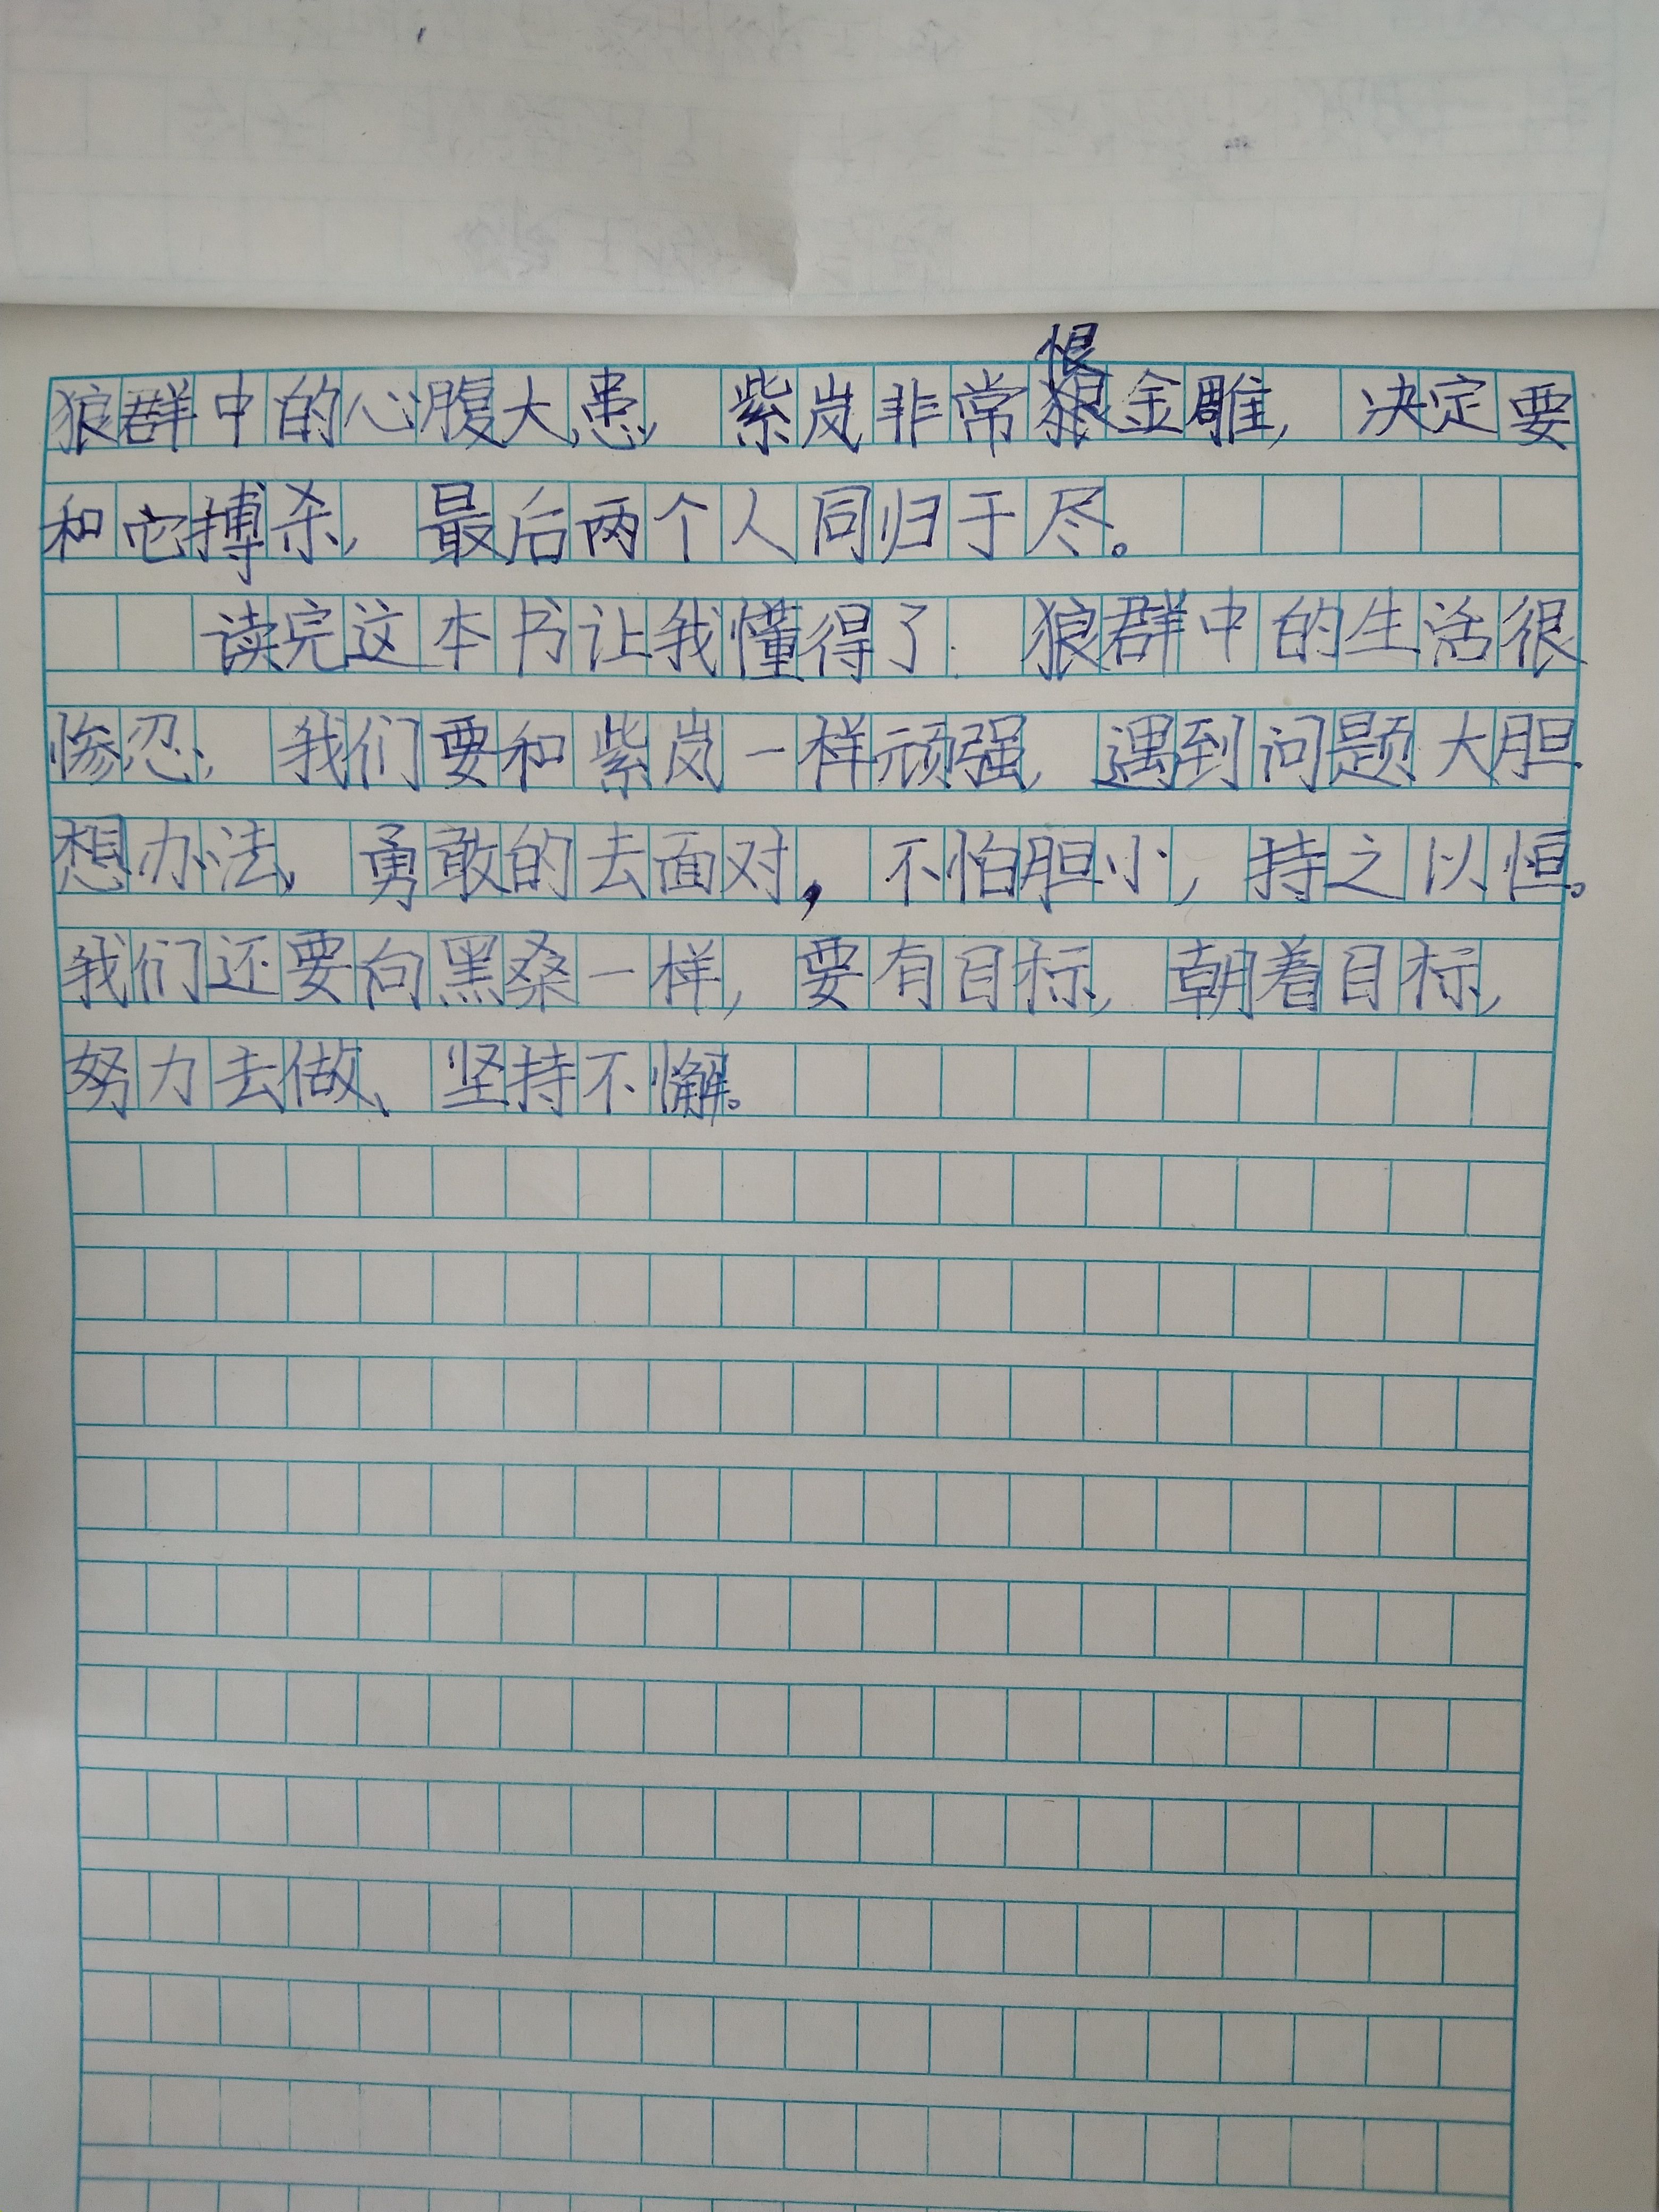 狼群中的心腹大患，紫岚非常恨金雕，决定要
和它搏杀，最后两个人同归于尽。
读完这本书让我懂得了，狼群中的生活很
惨忍，我们要和紫岚一样顽强，遇到问题大胆
想办法，勇敢的去面对，不怕胆小，持之以恒。
我们还要向黑桑一样，要有目标，朝着目标，
努力去做、坚持不懈。